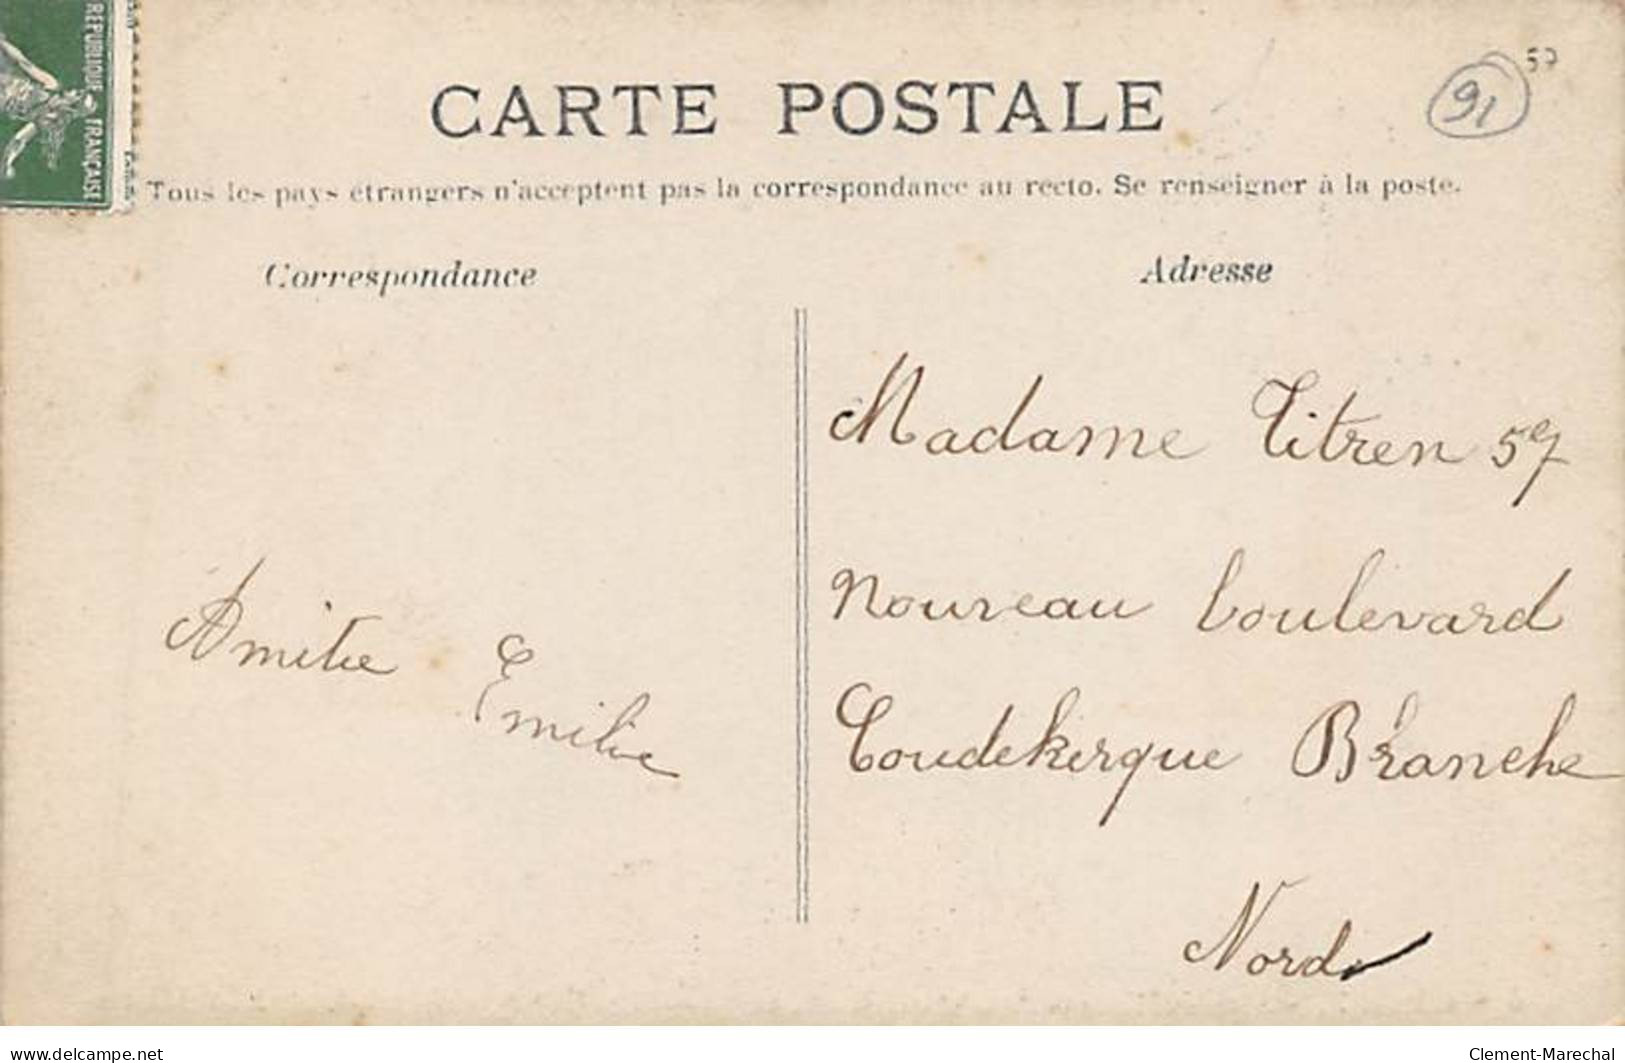 REPUBLIQUE FRANÇAISE
CARTE POSTALE
57
91
Tous les pays étrangers n'acceptent pas la correspondance au recto. Se renseigner à la poste.
Correspondance
Adresse
Madame Titren 57
nouveau boulevard
Coudekerque Branche
Nord
Amitie Emilie
www.delcampe.net
Clement-Marechal